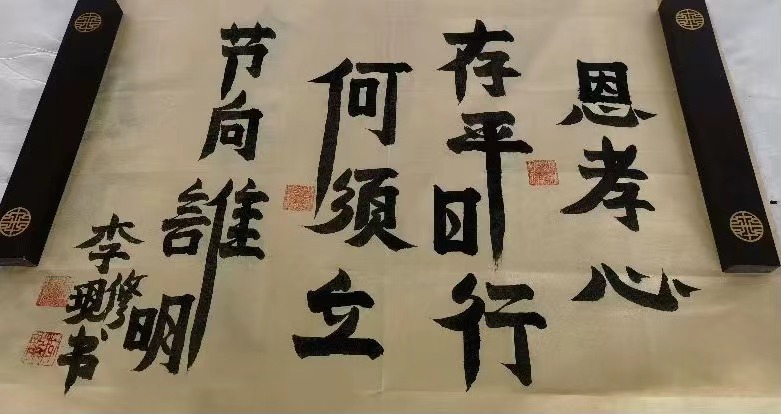 恩孝心
存平日行
何須立
节向誰明
李修书